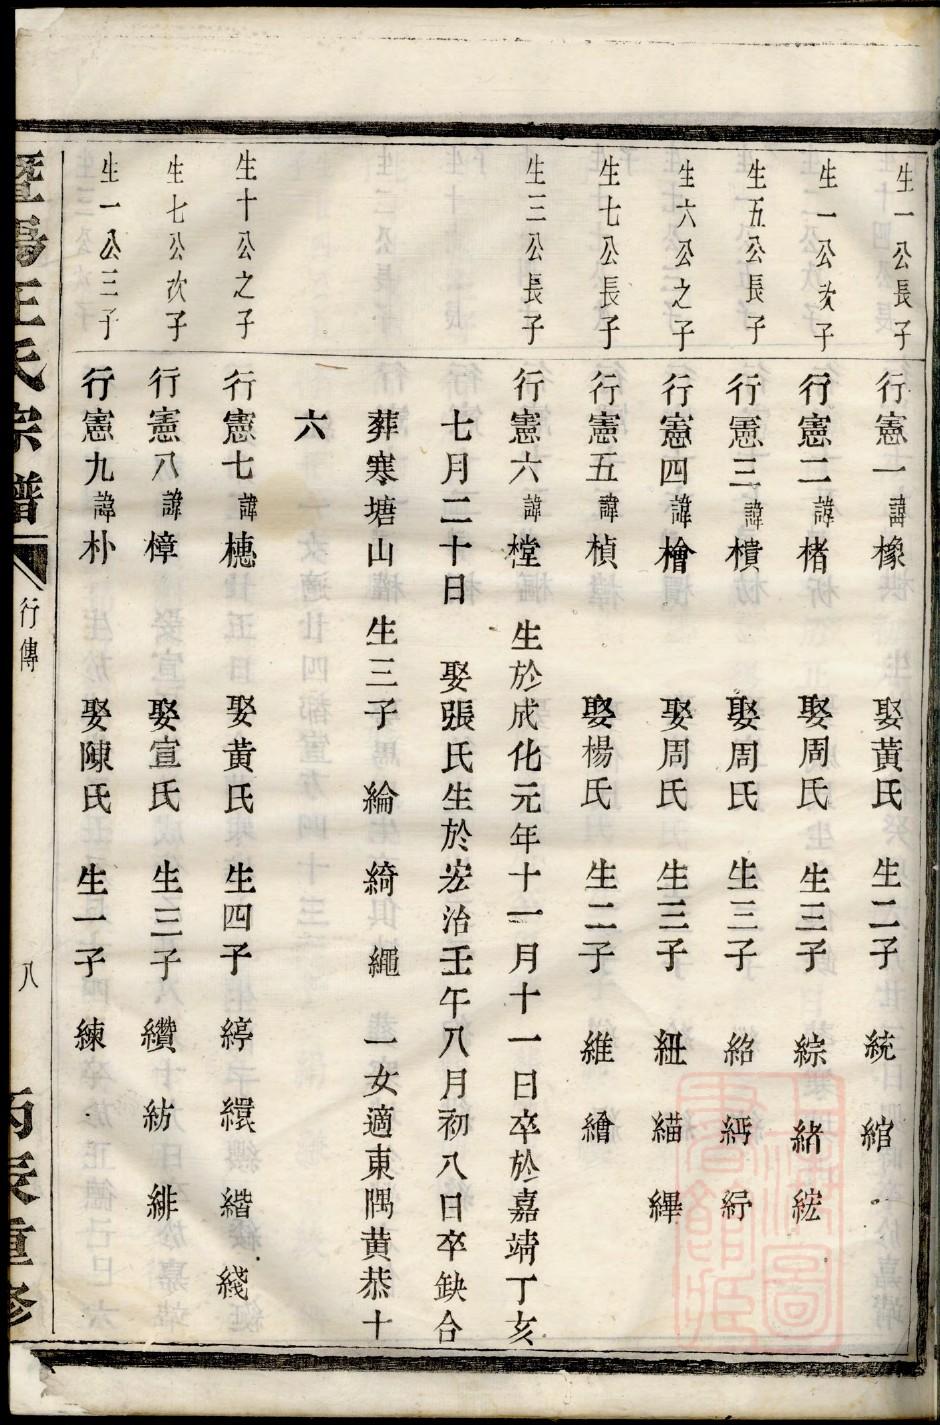 生一公長子 行憲一諱橡 娶黃氏 生二子 統 綰
生一公次子 行憲二諱楮 娶周氏 生三子 綜 緒 綋
生五公長子 行憲三諱樻 娶周氏 生三子 紹 䋈 紆
生六公之子 行憲四諱檜 娶周氏 生三子 紐 緢 縪
生七公長子 行憲五諱楨 娶楊氏 生二子 維 繪
生三公長子 行憲六諱樘 生於成化元年十一月十一日卒於嘉靖丁亥
七月二十日 娶張氏生於宏治壬午八月初八日卒缺合
葬寒塘山 生三子 綸 綺 繩 一女適東隅黃恭十
六
生十公之子 行憲七諱橞 娶黃氏 生四子 綧 繯 緇 綫
生七公次子 行憲八諱樟 娶宣氏 生三子 纘 紡 緋
生一公三子 行憲九諱朴 娶陳氏 生一子 練
暨陽王氏宗譜 行傳 八 丙辰重修